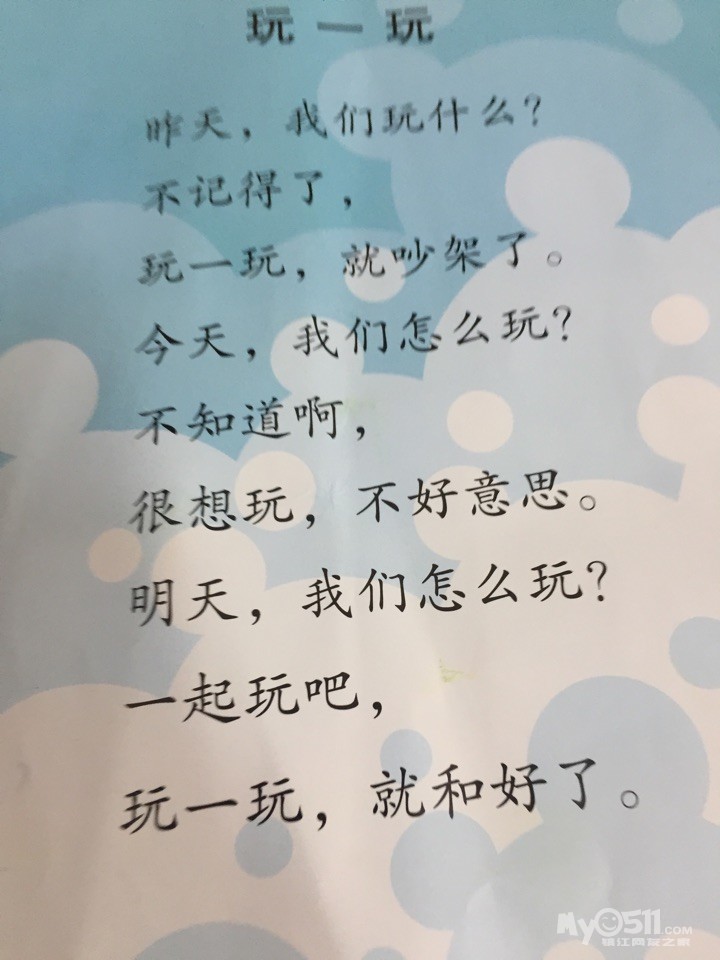 玩一玩
昨天，我们玩什么？
不记得了，
玩一玩，就吵架了。
今天，我们怎么玩？
不知道啊，
很想玩，不好意思。
明天，我们怎么玩？
一起玩吧，
玩一玩，就和好了。
My0511.COM
镇江网友之家